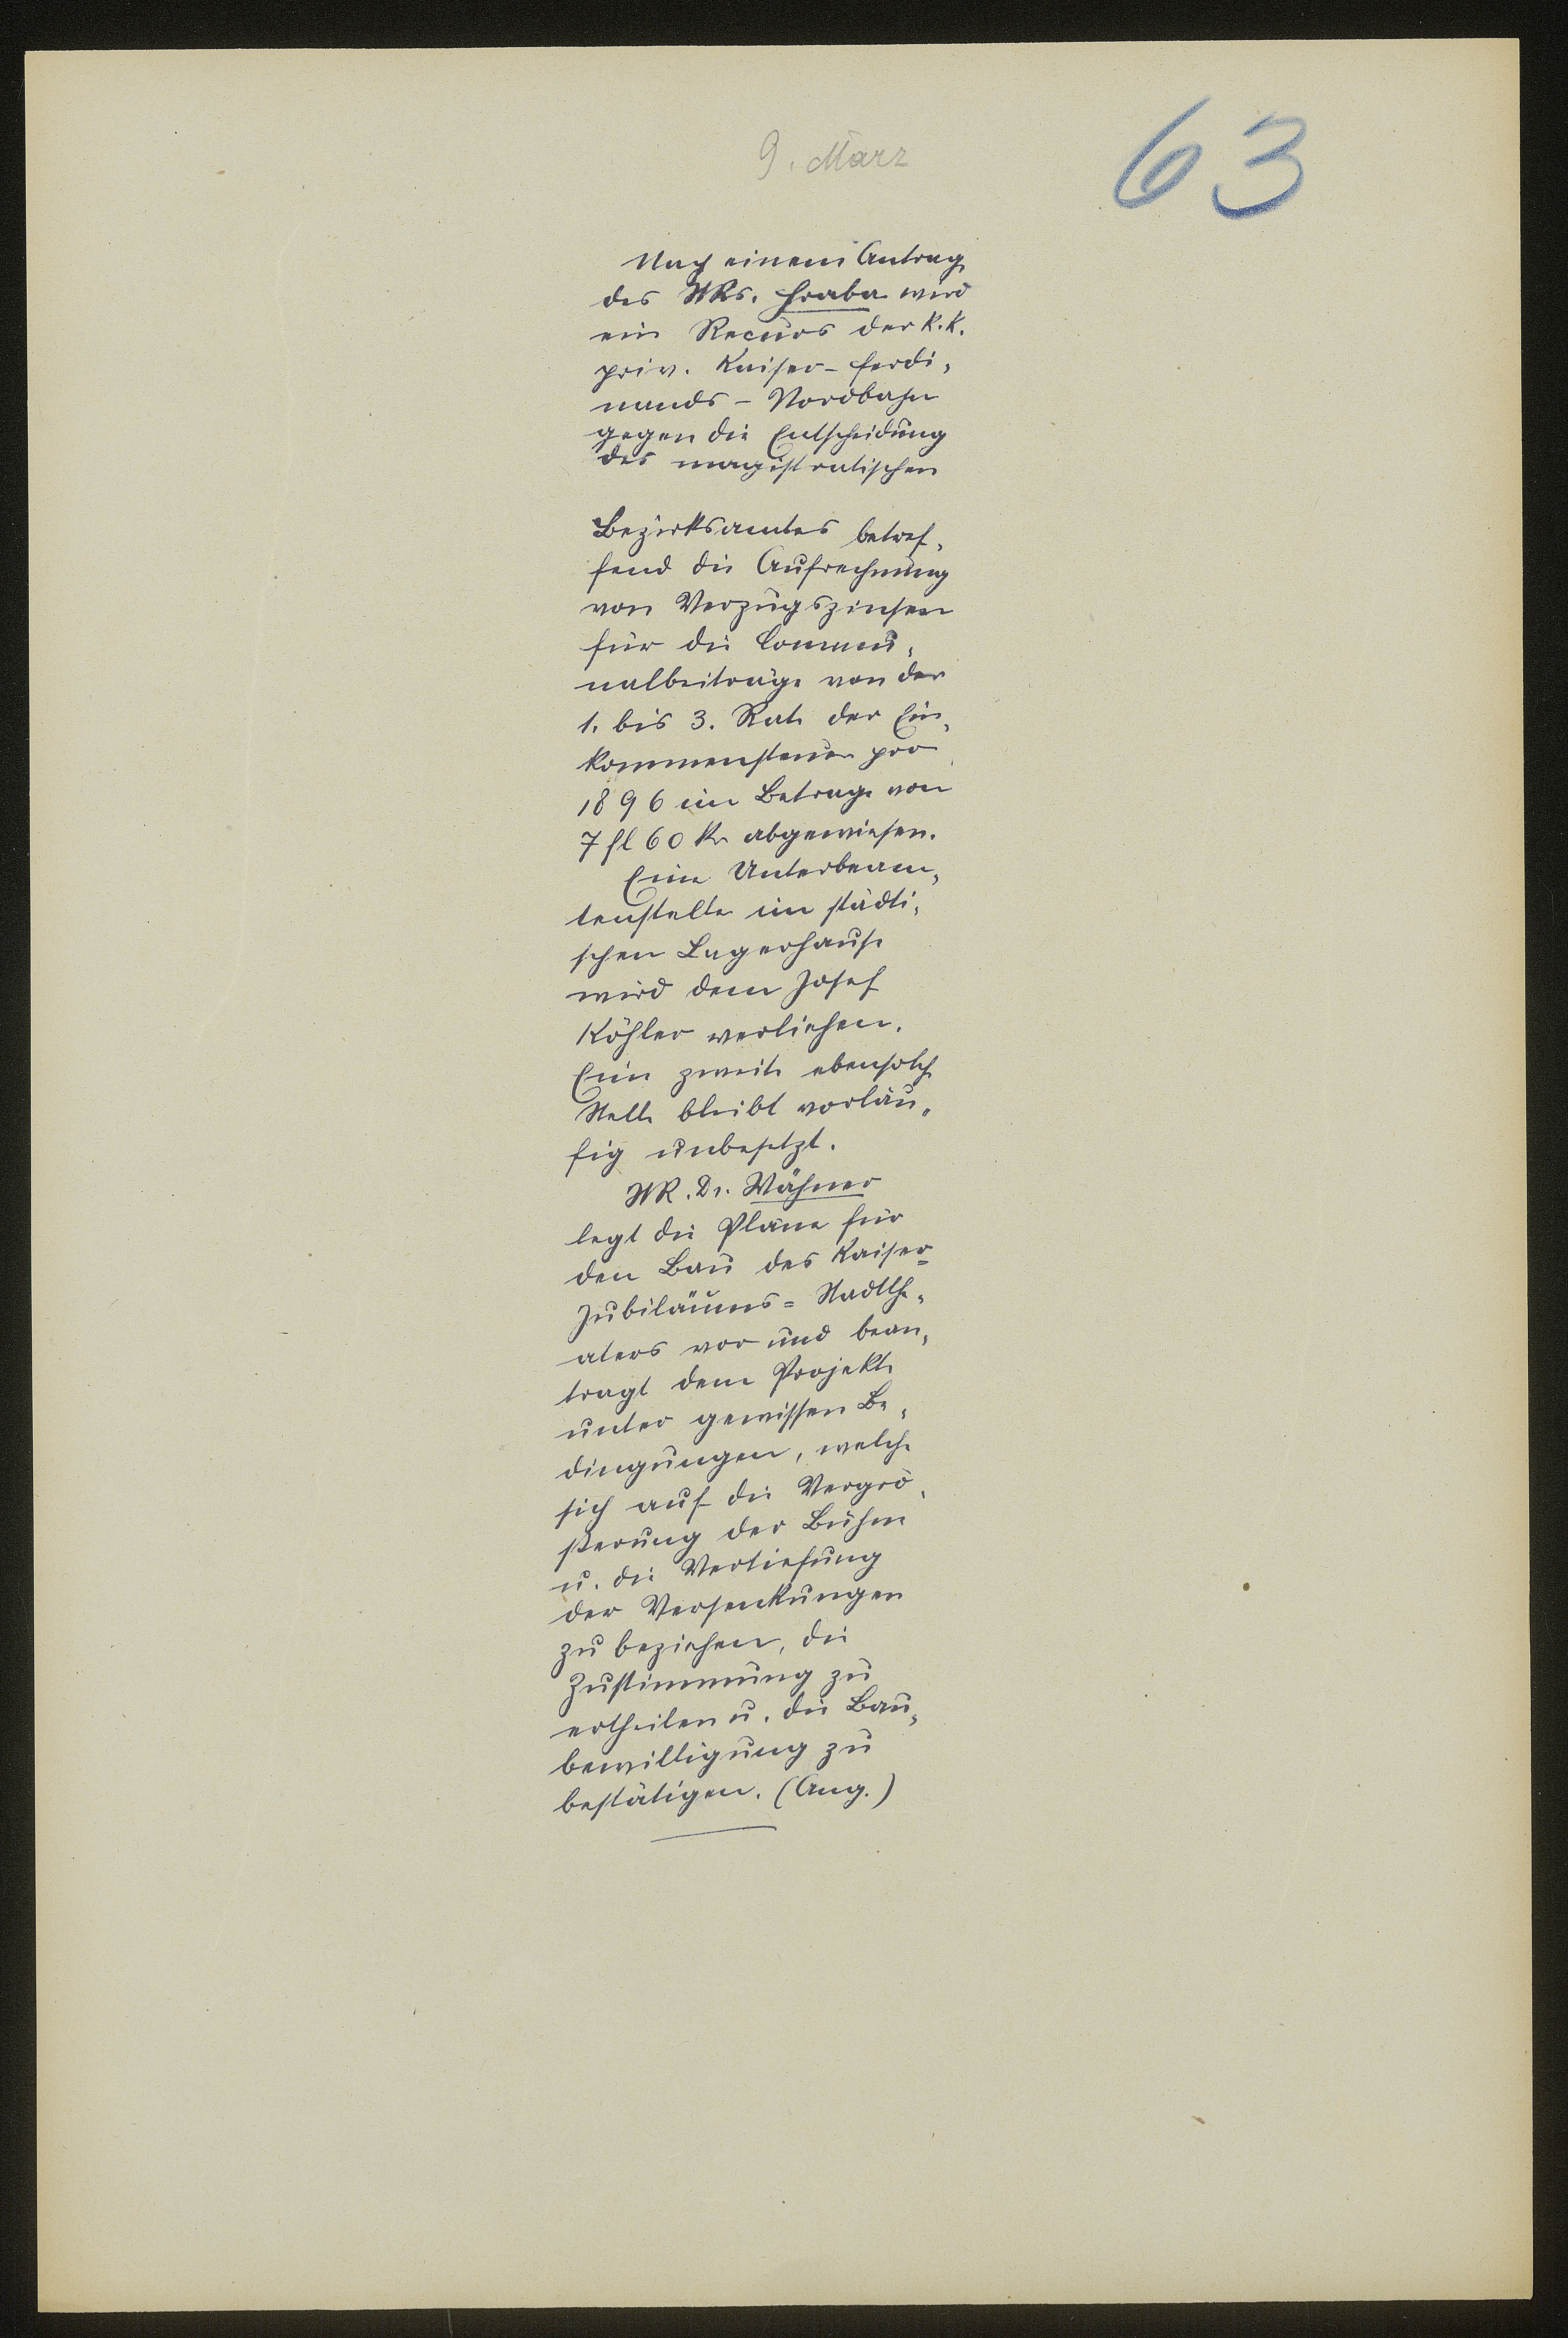 63
9. März
Nach einem Antrag
des StRs. Hraba wird
ein Recurs der k.k.
priv. Kaiser-Ferdi-
nands-Nordbahn
gegen die Entscheidung
des magistratischen
Bezirksamtes betref-
fend die Aufrechnung
von Verzugszinsen
für die Commu-
nalbeiträge von der
1. bis 3. Rate der Ein-
kommensteuer pro
1896 im Betrage von
7 fl 60 kr abgewiesen.
Eine Unterbeam-
tenstelle im städti-
schen Lagerhause
wird dem Josef
Köhler verliehen.
Eine zweite ebensolche
Stelle bleibt vorläu-
fig unbesetzt.
StR. Dr. Wähner
legt die Pläne für
den Bau des Kaiser=
Jubiläums=Stadtthe-
aters vor und bean-
tragt dem Projekte
unter gewissen Be-
dingungen, welche
sich auf die Vergrö-
ßerung der Bühne
u. die Vertiefung
der Versenkungen
zu beziehen, die
Zustimmung zu
ertheilen u. die Bau-
bewilligung zu
bestätigen. (Ang.)